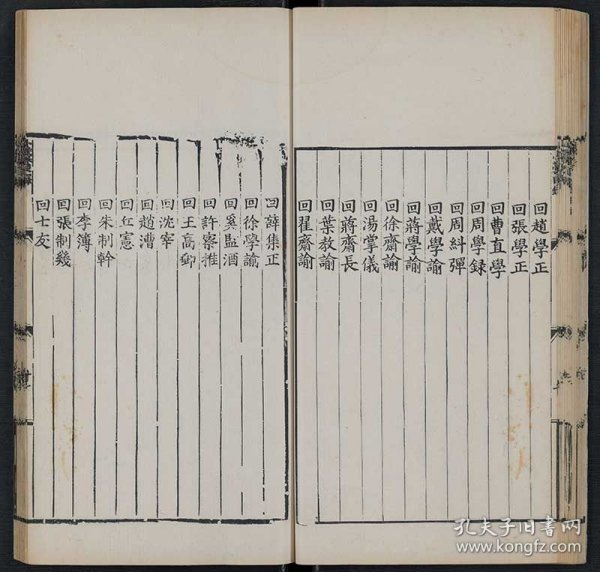 回趙學正
回張學正
回曹直學
回周學録
回周糾彈
回戴學諭
回蔣學諭
回徐齋諭
回湯掌儀
回蔣齋長
回葉教諭
回翟齋諭
回薛集正
回徐學諭
回奚監酒
回許察推
回王高郵
回沈宰
回趙漕
回丘憲
回朱制幹
回李簿
回張制幾
回士友
孔夫子旧书网
www.kongfz.com